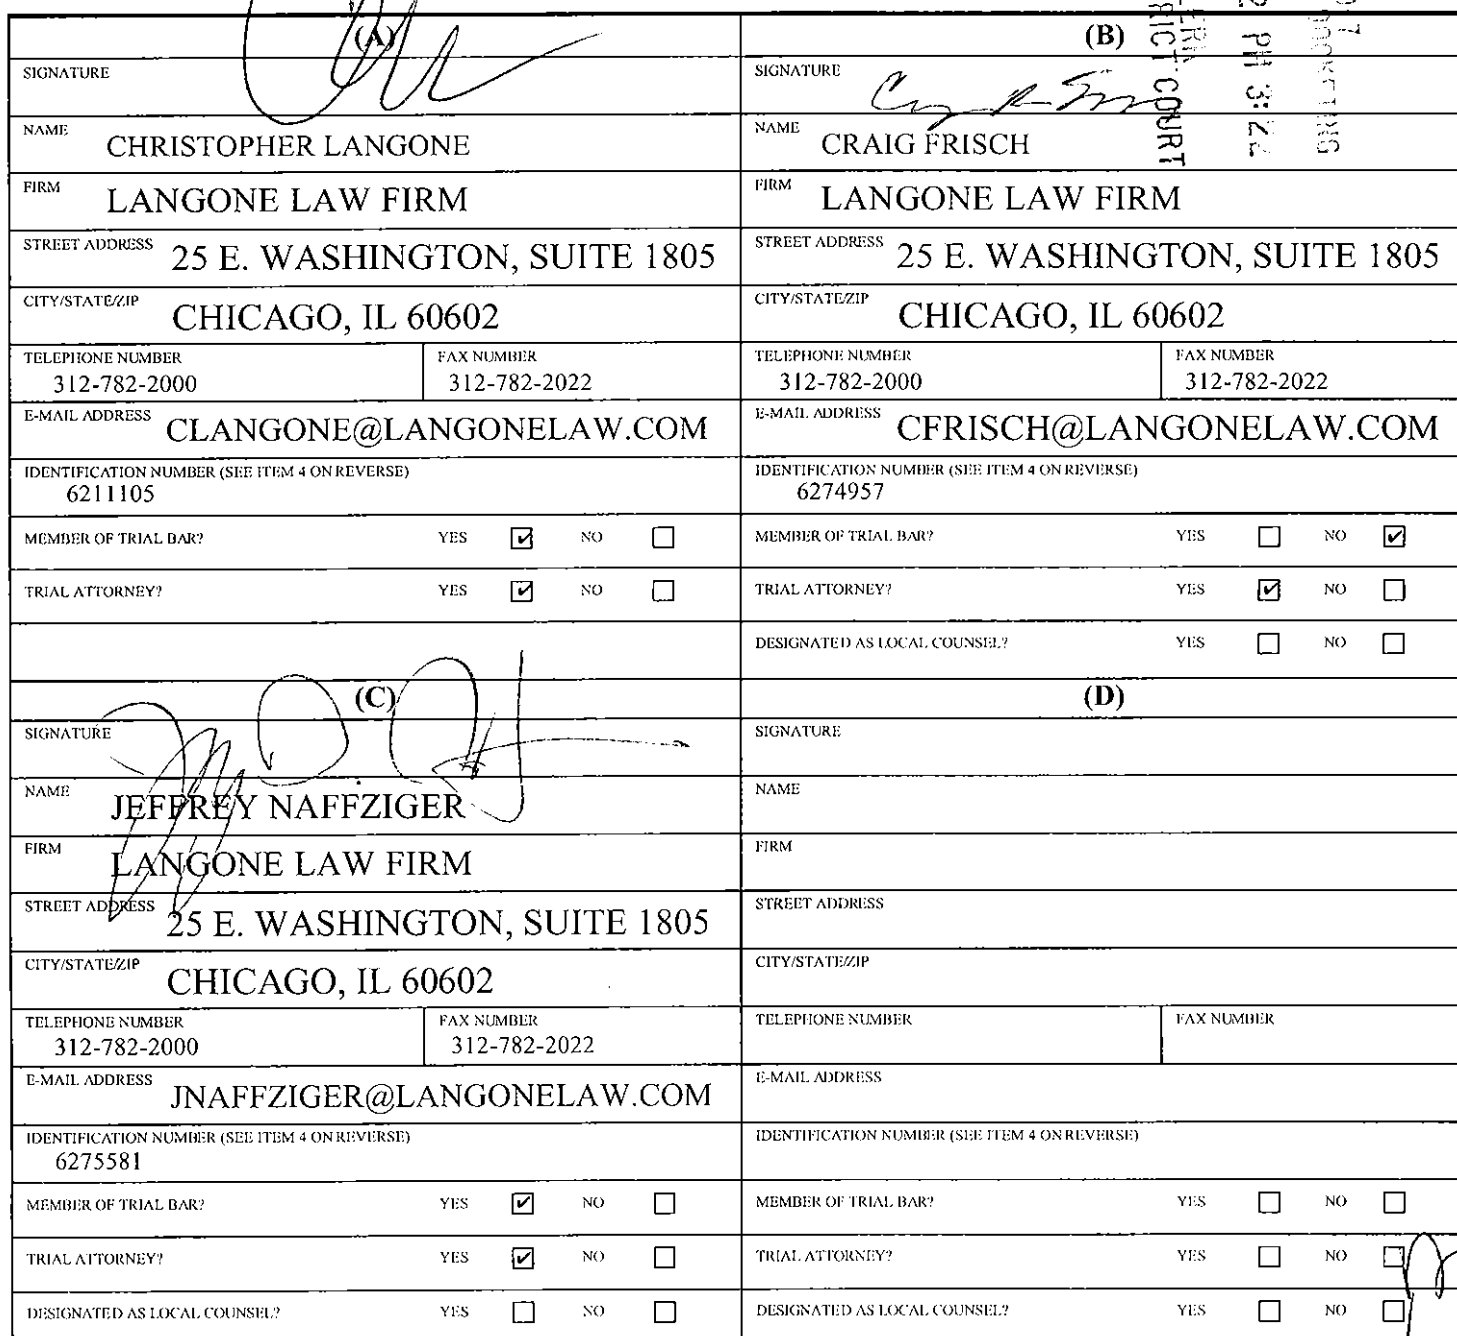 (A)
SIGNATURE
NAME CHRISTOPHER LANGONE
FIRM LANGONE LAW FIRM
STREET ADDRESS 25 E. WASHINGTON, SUITE 1805
CITY/STATE/ZIP CHICAGO, IL 60602
TELEPHONE NUMBER FAX NUMBER
312-782-2000 312-782-2022
E-MAIL ADDRESS CLANGONE@LANGONELAW.COM
IDENTIFICATION NUMBER (SEE ITEM 4 ON REVERSE)
6211105
MEMBER OF TRIAL BAR? YES NO
TRIAL ATTORNEY? YES NO
(B)
SIGNATURE
NAME CRAIG FRISCH
FIRM LANGONE LAW FIRM
STREET ADDRESS 25 E. WASHINGTON, SUITE 1805
CITY/STATE/ZIP CHICAGO, IL 60602
TELEPHONE NUMBER FAX NUMBER
312-782-2000 312-782-2022
E-MAIL ADDRESS CFRISCH@LANGONELAW.COM
IDENTIFICATION NUMBER (SEE ITEM 4 ON REVERSE)
6274957
MEMBER OF TRIAL BAR? YES NO
TRIAL ATTORNEY? YES NO
DESIGNATED AS LOCAL COUNSEL? YES NO
COURT
PM 3:22
(C)
SIGNATURE
NAME JEFFREY NAFFZIGER
FIRM LANGONE LAW FIRM
STREET ADDRESS 25 E. WASHINGTON, SUITE 1805
CITY/STATE/ZIP CHICAGO, IL 60602
TELEPHONE NUMBER FAX NUMBER
312-782-2000 312-782-2022
E-MAIL ADDRESS JNAFFZIGER@LANGONELAW.COM
IDENTIFICATION NUMBER (SEE ITEM 4 ON REVERSE)
6275581
MEMBER OF TRIAL BAR? YES NO
TRIAL ATTORNEY? YES NO
DESIGNATED AS LOCAL COUNSEL? YES NO
(D)
SIGNATURE
NAME
FIRM
STREET ADDRESS
CITY/STATE/ZIP
TELEPHONE NUMBER FAX NUMBER
E-MAIL ADDRESS
IDENTIFICATION NUMBER (SEE ITEM 4 ON REVERSE)
MEMBER OF TRIAL BAR? YES NO
TRIAL ATTORNEY? YES NO
DESIGNATED AS LOCAL COUNSEL? YES NO